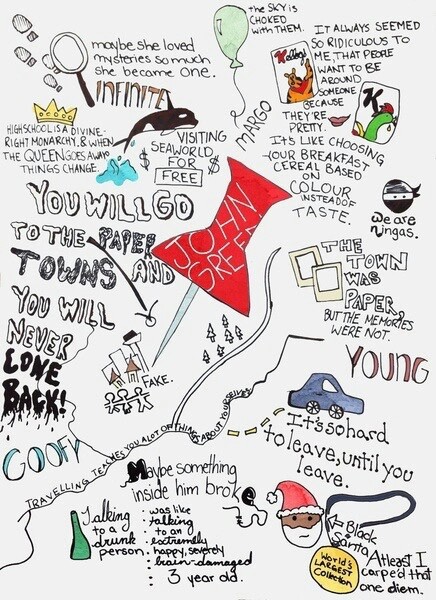 the SKY is
CHOKED
with THEM.
MARGO
maybe she loved
mysteries so much
she became one.
INFINITE
IT ALWAYS SEEMED
SO RIDICULOUS TO
ME, THAT PEOPLE
WANT TO BE
AROUND
SOMEONE
BECAUSE
THEY'RE
PRETTY.
IT'S LIKE CHOOSING
YOUR BREAKFAST
CEREAL BASED
ON
COLOUR
INSTEAD OF
TASTE.
K
HIGHSCHOOL IS A DIVINE-
RIGHT MONARCHY, & WHEN
THE QUEEN GOES AWAY
THINGS CHANGE.
VISITING
$ SEAWORLD $
FOR
FREE
we are
ningas.
YOU WILL GO
TO THE PAPER
TOWNS AND
YOU WILL
NEVER
COME
BACK!
JOHN
GREEN
THE
TOWN
WAS
PAPER,
BUT THE MEMORIES
WERE NOT.
FAKE.
YOUNG
GOOFY
TRAVELLING TEACHES YOU A LOT OF THINGS ABOUT YOURSELVES
It's so hard
to leave, until you
leave.
Maybe something
inside him broke
Talking
to a
drunk
person
was like
talking
to an
extremely
happy, severely
brain-damaged
3 year old.
Black
Santa
WORLD'S
LARGEST
COLLECTION
At least I
carpe'd that
one diem.